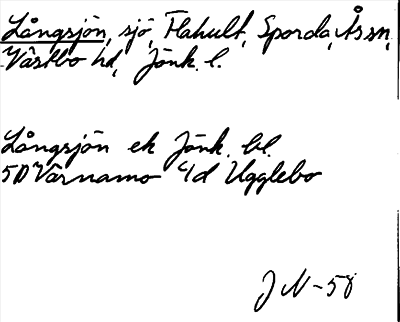 Långsjön, sjö, Flahult, Sporda, Ås sn,
Västbo hd, Jönk. l.
Långsjön ek Jönk. bl.
5D Värnamo 4d Ugglebo
JN-58